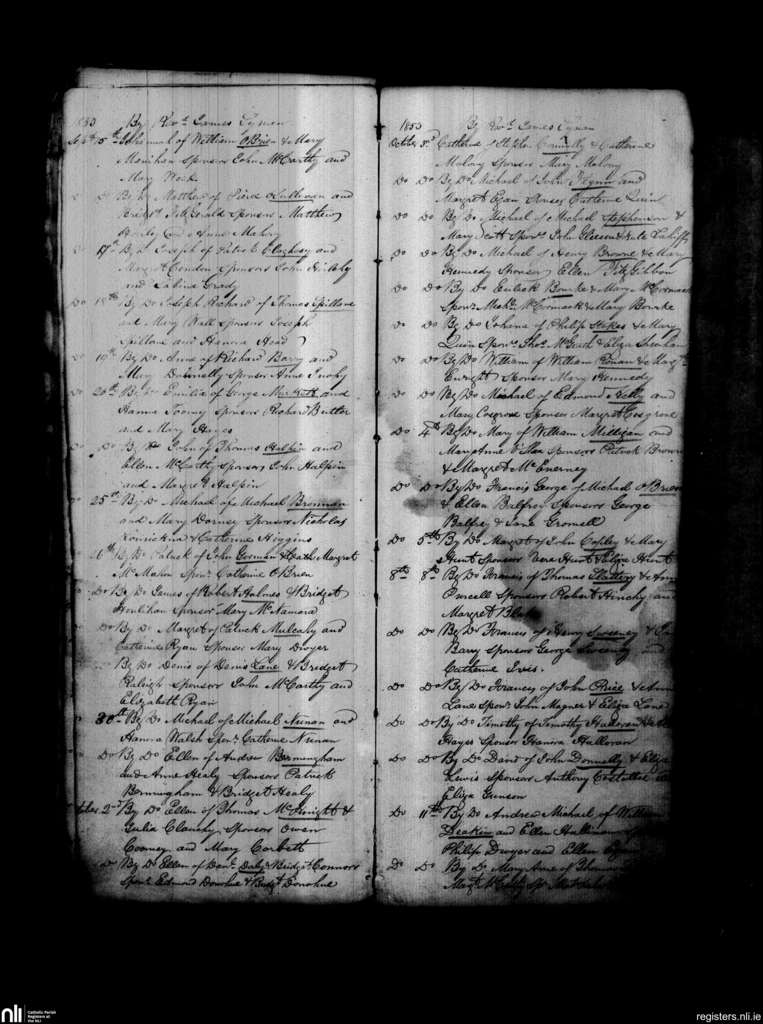 1853 By Revd. James Cynan
Septr. 15th Johannah of William O'Brien & Mary
Monihan Sponsors John McCarthy and
Mary
By Do Matthew of Pierce O'Sullivan and
FitzGerald Sponsors Matthew
and Anne Malony
17th By Do Joseph of Patrick Cloghesy and
Margt. Condon Sponsors John
and Sabina Grady
Do 18th By Do Joseph Richard of Thomas Spillane
and Mary Wall Sponsors Joseph
Spillane and Hanora Head
Do 19th By Do Anne of Richard Barry and
Mary Donnelly Sponsor Anne
20th By Do Emilia of George and
Hanna Toomy Sponsors Richard Butler
and Mary Hayes
Do By Do John of Thomas Halpin and
Ellen McCarthy Sponsors John Halpin
and Margret Halpin
25th By Do Michael of Michael Brennan
and Mary Dorney Sponsors Nicholas
& Catherine Higgins
26th By Do Patrick of John Gorman & Cath. Margret
McMahon Sponr. Catherine O'Brien
Do By Do James of Robert Holmes & Bridget
Houlihan Sponsor Mary McNamara
Do By Do Margret of Patrick Mulcahy and
Catherine Ryan Sponsor Mary Dwyer
By Do Denis of Denis Lane & Bridget
Raleigh Sponsors John McCarthy and
Elizabeth Ryan
30th By Do Michael of Michael Nunan and
Hanora Walsh Sponr. Catherine Nunan
Do By Do Ellen of Andrew Bermingham
and Anne Healy Sponsors Patrick
Bermingham & Bridget Healy
October 2nd By Do Ellen of Thomas McKnight &
Julia Clanchy Sponsors Owen
Cooney and Mary Corbett
Do By Do Ellen of Danl. Daly & Bridget Connors
Sponr. Edmond Donohue & Bridgt. Donohue
1853 By Revd. James Cynan
October 3rd Catherine of Stephen Connelly & Catherine
Malony Sponsor Mary Malony
Do Do By Do Michael of John Flynn and
Margret Egan Sponsor Catherine Quin
Do Do By Do Michael of Michael Stephenson &
Mary Scott Sponrs. John Gleeson & Kate
Do Do By Do Michael of Henry Browne & Mary
Kennedy Sponsor Ellen FitzGibbon
Do Do By Do Eulick Bourke & Mary McCormack
Sponr. McCormack & Mary Bourke
Do Do By Do Johana of Philip Stokes & Mary
Quin Sponrs. Thos. McGrath & Eliza Sheehan
Do Do By Do William of William &
Enright Sponsor Mary Kennedy
Do Do By Do Michael of Edmond Kelly and
Mary Cosgrove Sponsor Margret Cosgrove
Do 4th By Do Mary of William Milligan and
Mary Anne Sponsors Patrick Brown
& Margret McEnerney
Do Do By Do Francis George of Michael O'Brien
& Ellen Balfry Sponsors George
Balfry & Jane Gronell
Do 5th By Do Margret of John Copley & Mary
Hunt Sponsor Hunt & Eliza Hunt
8th 8th By Do Francis of Thomas Slattery & Ann
Purcell Sponsors Robert Hinchy and
Margret
Do Do By Do Francis of Henry Sweeney &
Barry Sponsors George Sweeney and
Catherine Ives.
Do Do By Do Francis of John Price & Ann
Lane Sponrs. John Magner & Eliza Lane
Do Do By Do Timothy of Timothy Halloran &
Hayes Sponsor Hanora Halloran
Do Do By Do David of John Donnelly & Eliza
Lewis Sponsors Anthony Costelloe &
Eliza Gunson
Do 11th By Do Andrew Michael of William
Deakin and Ellen Hallinan
Philip Dwyer and Ellen
Do Do By Do Mary Anne of Thomas
Margt.
nli Catholic Parish
Registers at
the NLI
registers.nli.ie